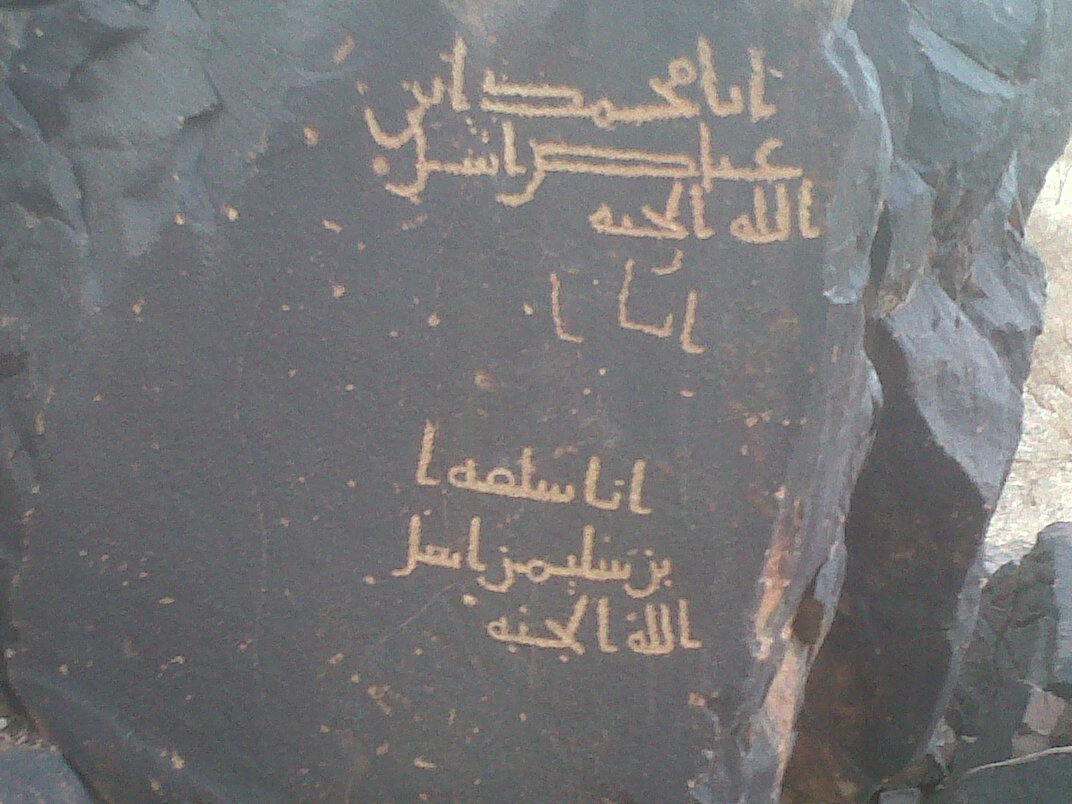 انا محمد ابن
عباكر اسل
الله الجنه
انا ا
انا سلمه ا
بن سليمن اسل
الله الجنه